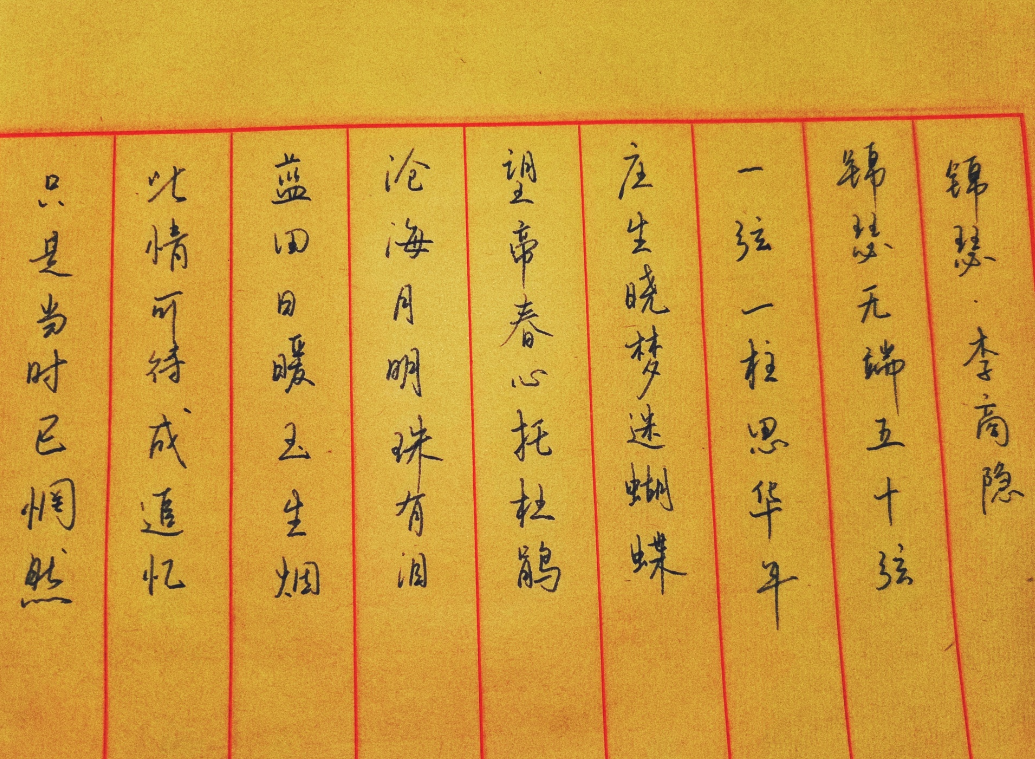 锦瑟·李商隐
锦瑟无端五十弦
一弦一柱思华年
庄生晓梦迷蝴蝶
望帝春心托杜鹃
沧海月明珠有泪
蓝田日暖玉生烟
此情可待成追忆
只是当时已惘然